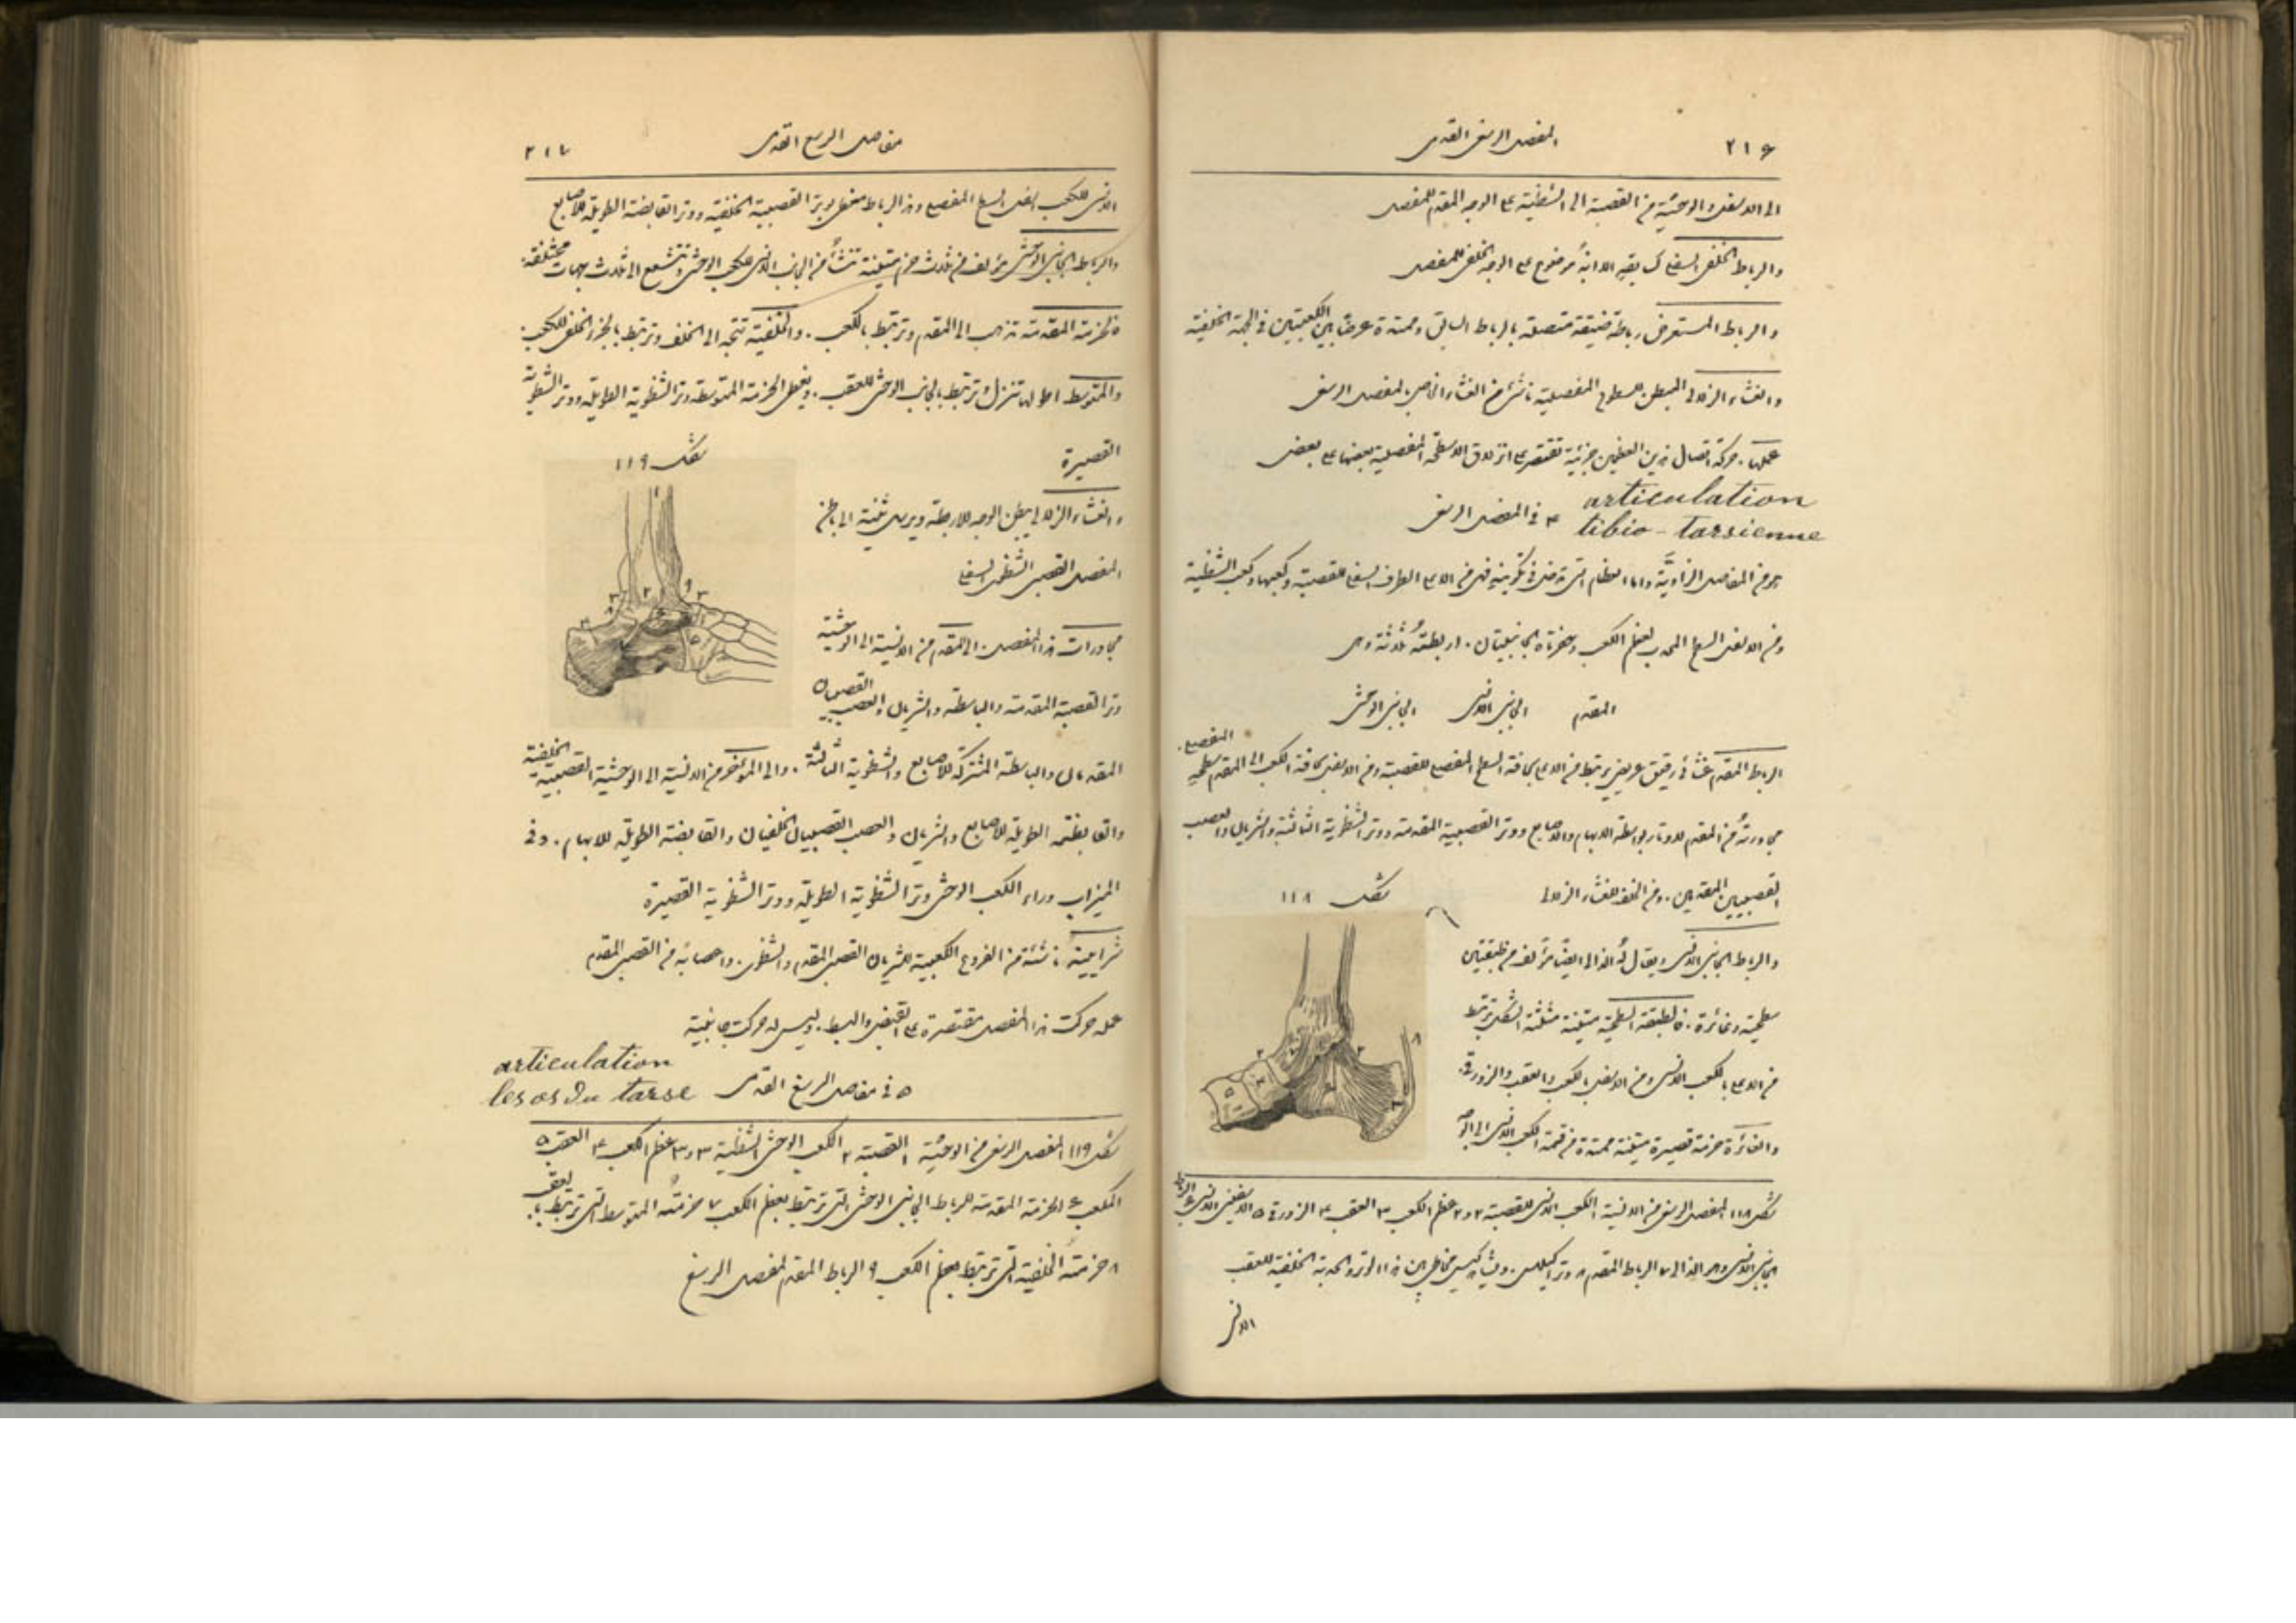 ٢١٦ المفصل الرسغى القدمى
الى الاسفل والوحشية من القصبة الى الشظية على الوجه المقدم للمفصل
والرباط الخلفى السفلى كسابقه الا انهُ موضوع على الوجه الخلفى للمفصل
والرباط المستعرض رباطة ضيقة متصلة بالرباط السابق وممتدة عرضًا بين الكعبتين فى الجهة الخلفية
والغشاء الزلالى المبطن للسطوح المفصلية ناشئ من الغشاء الخاص لمفصل الرسغ
عملها. حركة اتصال هذين العظمين جزئية تقتصر على انزلاق الاسطحة المفصلية بعضها على بعض
articulation
tibio-tarsienne ٤ فى المفصل الرسغى
هو من المفاصل الزاوية واما العظام التى تدخل فى تكوينه فهى من الاعلى الطرف السفلى للقصبة وكعبها وكعب الشظية
ومن الاسفل السطح المحدب لعظم الكعب وحفرتاه الجانبيتان. اربطتهُ ثلاثة وهى
المقدم الجانبى الانسى الجانبى الوحشى
الرباط المقدم غشائى رقيق عريض يرتبط من الاعلى بحافة السطح المفصلى للقصبة ومن الاسفل بحافة الكعب الى المقدم سطحهِ المفصلى.
مجاورتهُ من المقدم للاوتار باسطة الابهام والاصابع ووتر القصبية المقدمة ووتر الشظوية الثالثة والشريان والعصب
القصبيين المقدمين. ومن الخلف للغشاء الزلالى
شكل ١١٨
والرباط الجانبى الانسى ويقال لهُ الدالى ايضًا مؤلف من طبقتين
سطحية وغائرة. فالطبقة السطحية متينة مثلثة الشكل ترتبط
من الاعلى بالكعب الانسى ومن الاسفل بالكعب والعقب والزورقى.
والغائرة حزمة قصيرة متينة ممتدة من قمة الكعب الانسى الى الوجه
شكل ١١٨ المفصل الرسغى من الانسية ١ الكعب الانسى للقصبة ٢ و٢ عظم الكعب ٣ العقب ٤ الزورقى ٥ الاسفينى الانسى ٦ الرباط
الجانبى الانسى وهو الدالى ٧ الرباط المقدم ٨ وتر اكيلس. ويشاهد كيس مخاطى بين هذا الوتر والحدبة الخلفية للعقب
الانسى
مفاصل الرسغ القدمى ٢١٧
الانسى للكعب اسفل السطح المفصلى وهذا الرباط مغطى بوتر القصبية الخلفية ووتر القابضة الطويلة للاصابع
والرباط الجانبى الوحشى مؤلف من ثلاث حزم متينة تنشأ من الجانب الانسى للكعب الوحشى وتتشعع الى ثلاث جهات مختلفة:
فالحزمة المقدمة تذهب الى المقدم وترتبط بالكعب. والخلفية تتجه الى الخلف وترتبط بالجزء الخلفى للكعب:
والمتوسط اطولها تنزل وترتبط بالجانب الوحشى للعقب. ويغطى الحزمة المتوسطة وتر الشظوية الطويلة ووتر الشظوية
القصيرة
شكل ١١٩
والغشاء الزلالى يبطن الوجه للاربطة ويرسل ثنية الى باطن
المفصل القصبى الشظوى السفلى
مجاورات هذا المفصل. الى المقدم من الانسية الى الوحشية
وتر القصبية المقدمة والباسطة والشريان والعصب القصبيان
المقدمان والباسطة المشتركة للاصابع والشظوية الثالثة. والى المؤخر من الانسية الى الوحشية القصبية الخلفية
والقابضة الطويلة للاصابع والشريان والعصب القصبيان الخلفيان والقابضة الطويلة للابهام. وفى
الميزاب وراء الكعب الوحشى وتر الشظوية الطويلة ووتر الشظوية القصيرة
شرايينهُ ناشئة من الفروع الكعبية للشريان القصبى المقدم والشظوى. واعصابه من القصبى المقدم
عمله حركت هذا المفصل مقتصرة على القبض والبسط. وليس له حركت جانبية
articulation
les os du tarse ٥ فى مفاصل الرسغ القدمى
شكل ١١٩ المفصل الرسغى من الوحشية ١ القصبة ٢ الكعب الوحشى للشظية ٣ و٣ عظم الكعب ٤ العقب ٥
المكعب ٦ الحزمة المقدمة للرباط الجانبى الوحشى التى ترتبط بعظم الكعب ٧ حزمتهُ المتوسط التى ترتبط بالعقب
٨ حزمتهُ الخلفية التى ترتبط بعظم الكعب ٩ الرباط المقدم لمفصل الرسغ